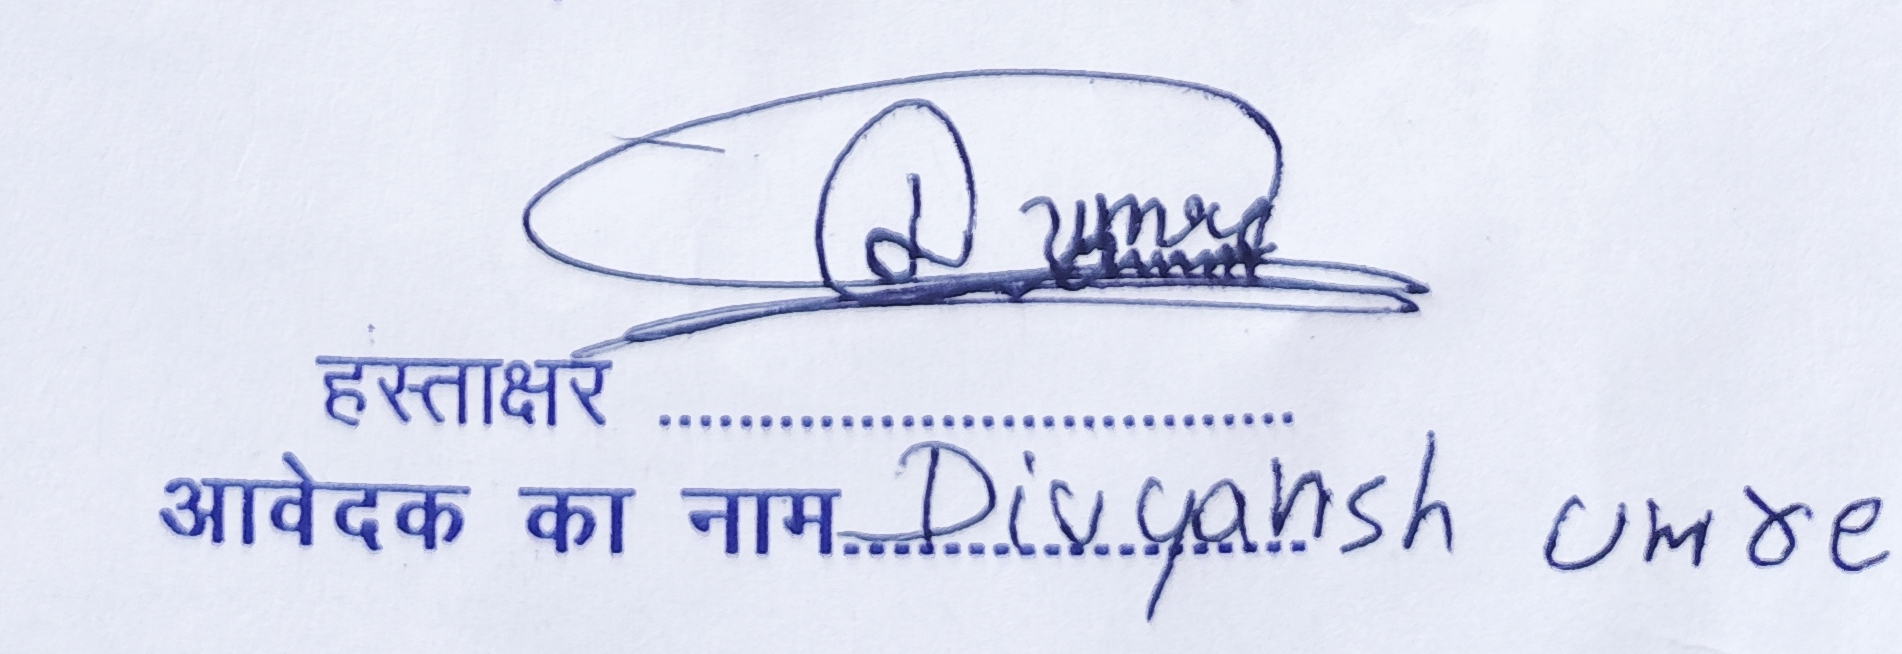 D umre
हस्ताक्षर ................................
आवेदक का नाम.......................... Divyansh umre